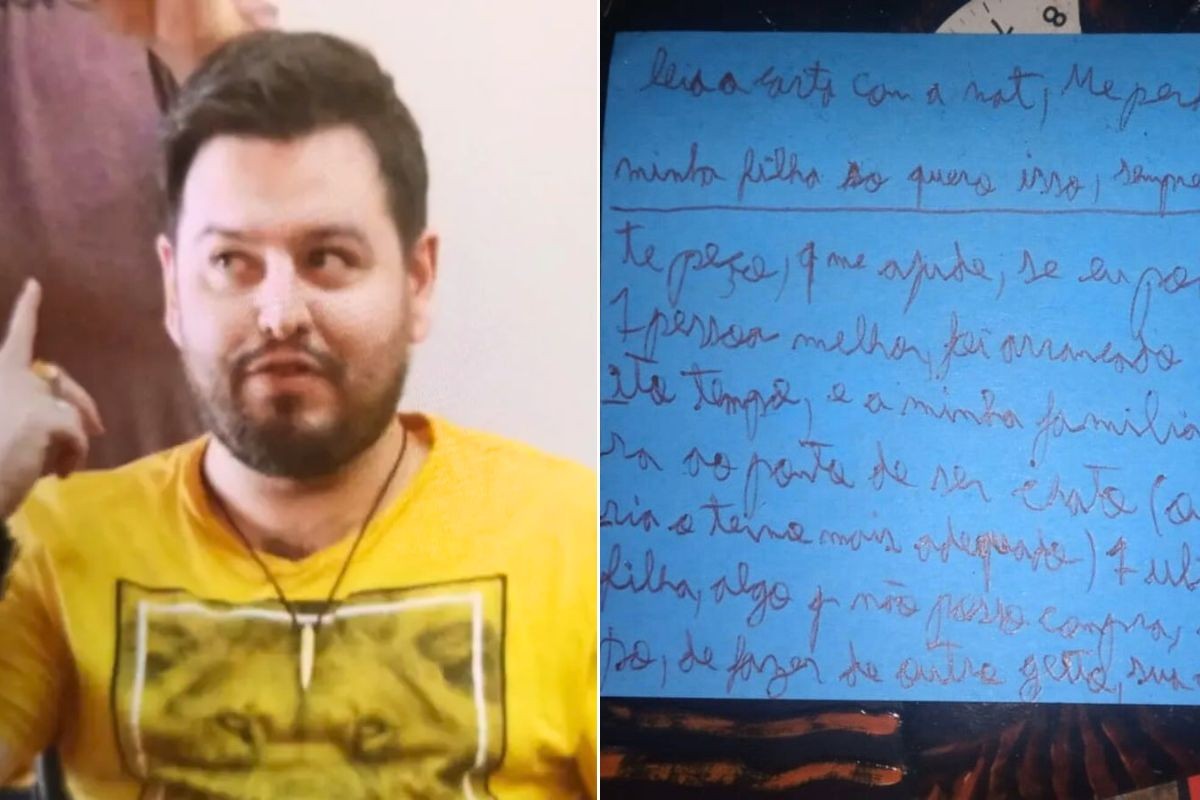 8
7
leia a carta com a nat, Me per
minha filha so quero isso, sempre
te peço, q me ajude, se eu po
1 pessoa melhor, foi
tempo, e a minha familia
ra ao ponto de ser chato (
ria o termo mais adequado) 1
filha, algo q não posso compra,
so, de fazer de outro getto, sua